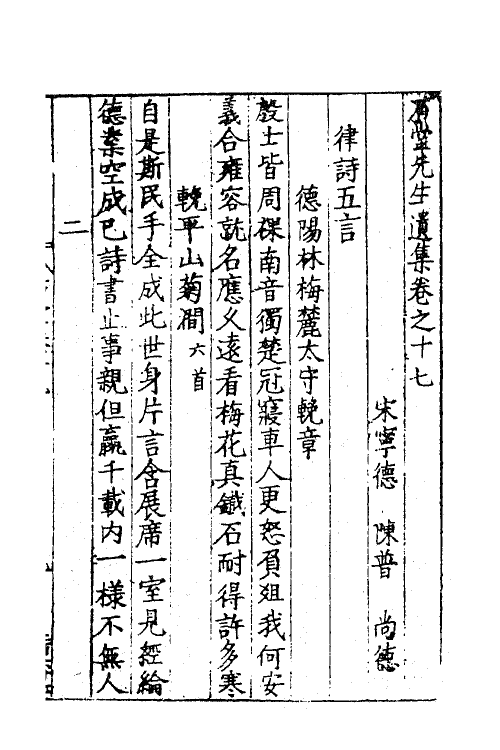 石堂先生遺集卷之十七
宋寧德 陳普 尚德
律詩五言
德陽林梅麓太守輓章
殷士皆周祼南音獨楚冠寢車人更怒負俎我何安
義合雍容就名應久遠看梅花真鐵石耐得許多寒
輓平山菊澗六首
自是斯民手全成此世身片言含展席一室見經綸
德業空成已詩書止事親但嬴千載内一様不無人
二